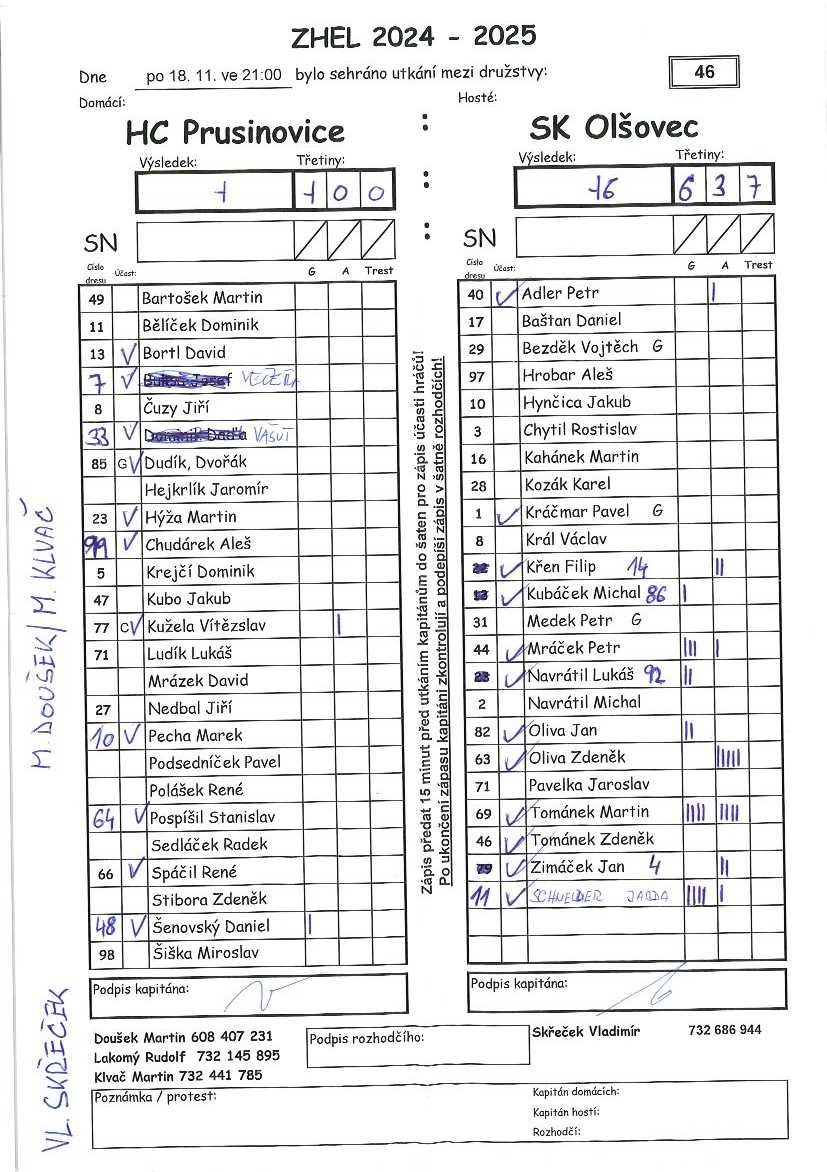 ZHEL 2024 - 2025
Dne po 18. 11. ve 21:00 bylo sehráno utkání mezi družstvy: 46
Domácí: Hosté:
HC Prusinovice : SK Olšovec
Výsledek: Třetiny: Výsledek: Třetiny:
1 1 0 0 : 16 6 3 7
SN : SN
Číslo dresu Účast: G A Trest
49 Bartošek Martin
11 Bělíček Dominik
13 V Bortl David
7 V VEČEŘA
8 Čuzy Jiří
33 V VAŠUT
85 G V Dudík, Dvořák
Hejkrlík Jaromír
23 V Hýža Martin
99 V Chudárek Aleš
5 Krejčí Dominik
47 Kubo Jakub
77 C V Kužela Vítězslav |
71 Ludík Lukáš
Mrázek David
27 Nedbal Jiří
10 V Pecha Marek
Podsedníček Pavel
Polášek René
64 V Pospíšil Stanislav
Sedláček Radek
66 V Spáčil René
Stibora Zdeněk
48 V Šenovský Daniel |
98 Šiška Miroslav
Číslo dresu Účast: G A Trest
40 ✓ Adler Petr |
17 Baštan Daniel
29 Bezděk Vojtěch G
97 Hrobar Aleš
10 Hynčica Jakub
3 Chytil Rostislav
16 Kahánek Martin
28 Kozák Karel
1 ✓ Kráčmar Pavel G
8 Král Václav
✓ Křen Filip 14 ||
✓ Kubáček Michal 86 |
31 Medek Petr G
44 ✓ Mráček Petr ||| |
✓ Navrátil Lukáš 92 ||
2 Navrátil Michal
82 ✓ Oliva Jan ||
63 ✓ Oliva Zdeněk |||||
71 Pavelka Jaroslav
69 ✓ Tománek Martin |||| ||||
46 ✓ Tománek Zdeněk
✓ Zimáček Jan 4 ||
11 ✓ SCHNEIDER JARDA |||| |
Zápis předat 15 minut před utkáním kapitánům do šaten pro zápis účasti hráčů!
Po ukončení zápasu kapitání zkontrolují a podepíší zápis v šatně rozhodčích!
M. DOUŠEK / M. KLVAČ
VL. SKŘEČEK
Podpis kapitána: Podpis kapitána:
Doušek Martin 608 407 231
Lakomý Rudolf 732 145 895
Klvač Martin 732 441 785
Podpis rozhodčího:
Skřeček Vladimír 732 686 944
Poznámka / protest:
Kapitán domácích:
Kapitán hostí:
Rozhodčí: